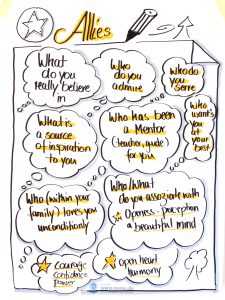 Allies
What
do you
really believe
in
Who
do you
admire
Who do
you
serve
Who
want's
you
at your
best
What is
a source
of inspiration
to you
Who has been
a Mentor
(teacher, guide)
for you
Who (within your
family) loves you
unconditionly
Who/What
do you assoziate with
Openess - perception
a beautiful mind
Courage
confidence
power
open heart
harmony